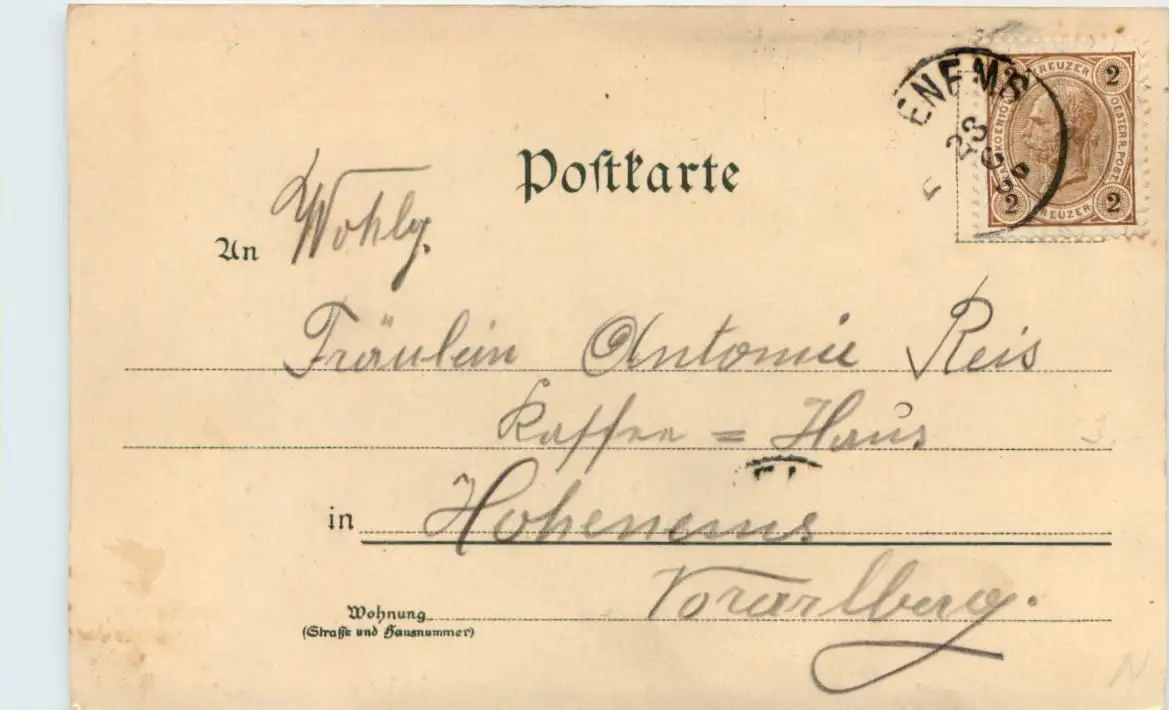 Postkarte
ENEMS
23
KREUZER
2
OESTERR. POST
2
KREUZER
2
An Wohlg.
Fräulein Antonie Reis
Kaffee = Haus
in Hohenems
Vorarlberg.
Wohnung
(Straße und Hausnummer)
3.
N